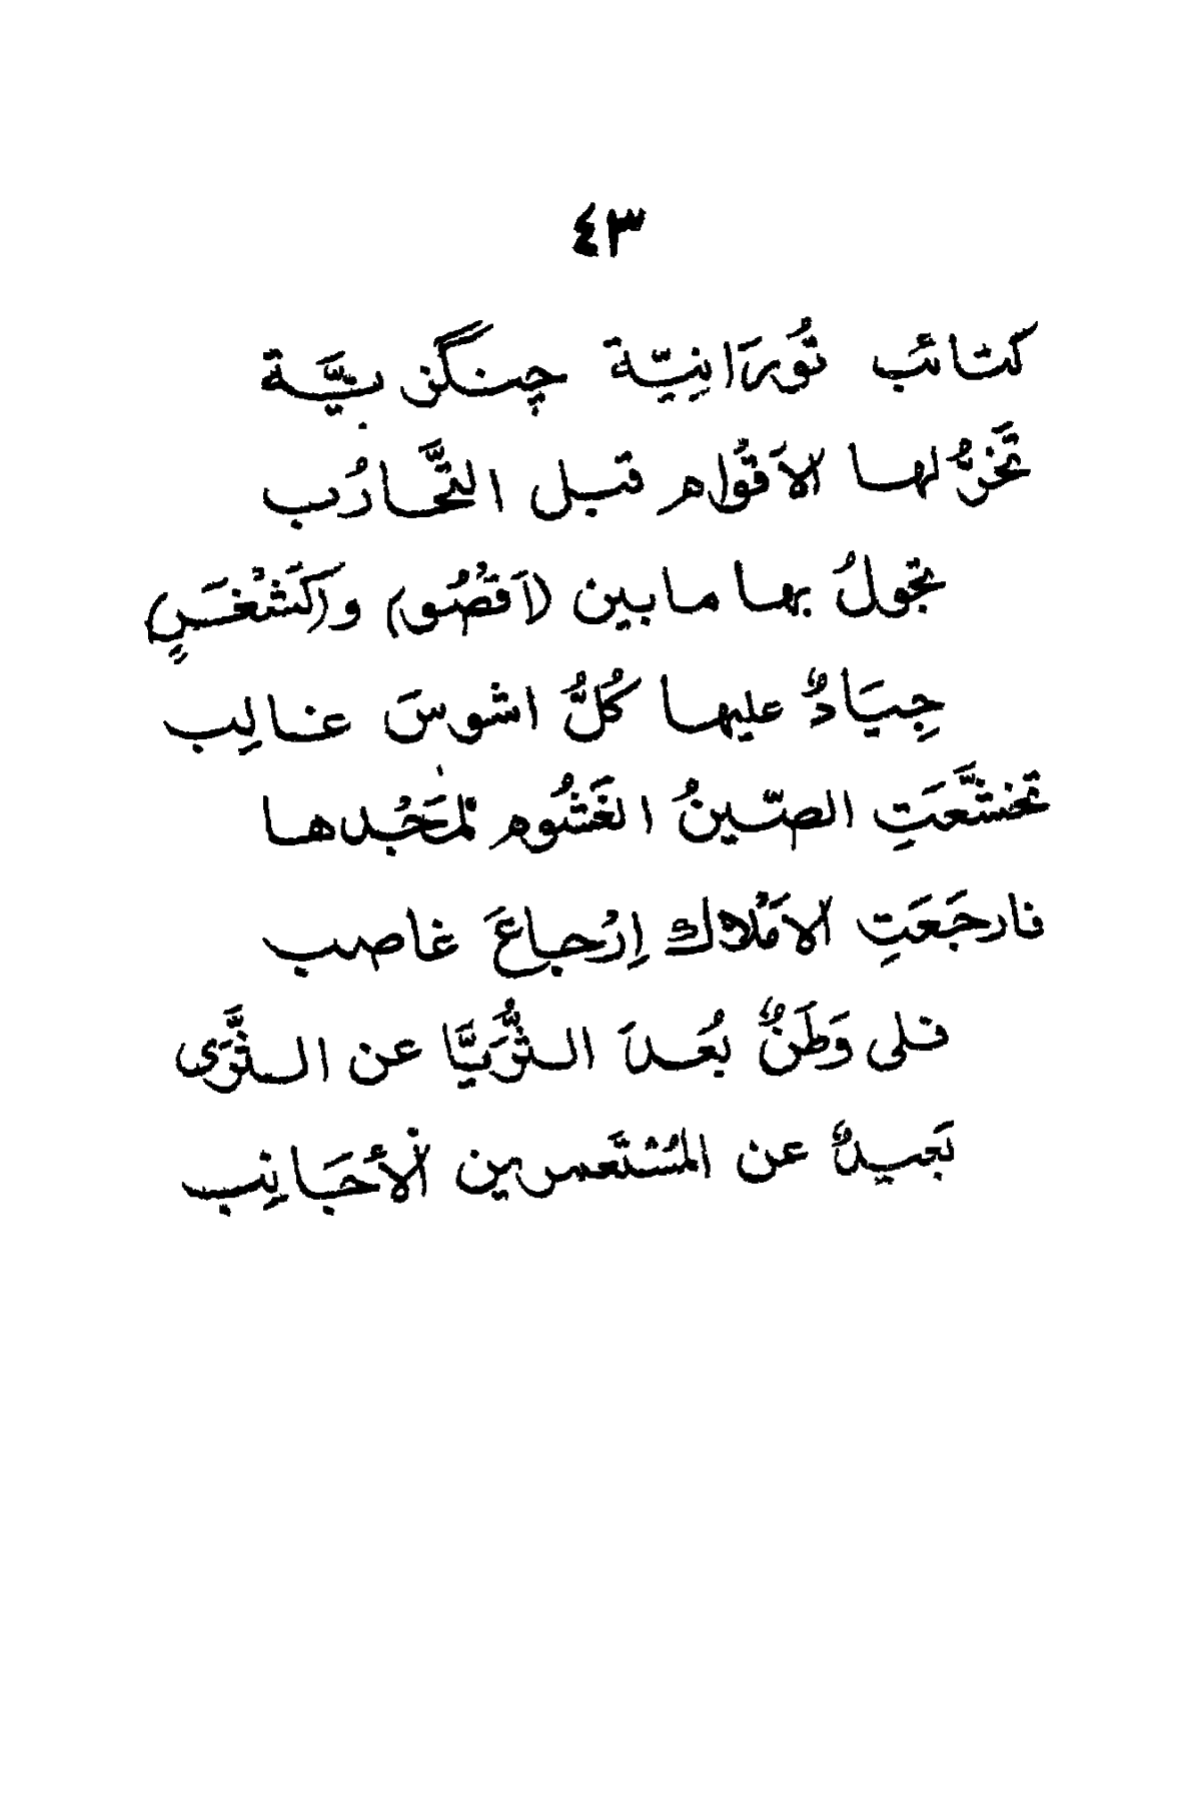 ٤٣
كتائب تُورَانِيّة چنگزيَّة
تَخرُّ لها الاَقوُام قبل التَّحَارُب
تجولُ بها ما بين (اَقصُو) و(كَشْغَرٍ)
جِيَادٌ عليها كُلُّ اشوسَ غالِب
تخشَّعَتِ الصّينُ الغَشُوم لمَجْدها
فارجَعَتِ الاَمْلاك اِرْجاعَ غاصب
فلى وَطَنٌ بُعدَ الثُّرَيَّا عن الثَّرَى
بَعيدٌ عن المُسْتَعمرين الأَجَانِب